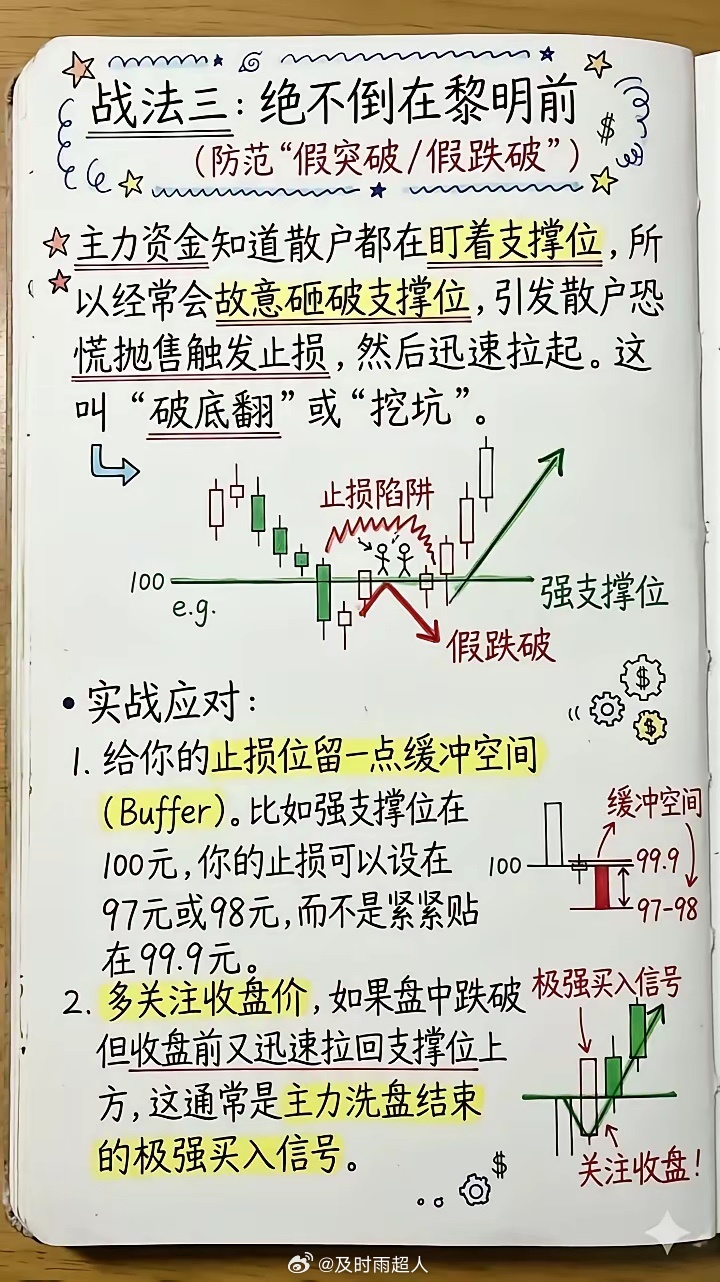 战法三：绝不倒在黎明前
（防范“假突破/假跌破”）
$
主力资金知道散户都在盯着支撑位，所
以经常会故意砸破支撑位，引发散户恐
慌抛售触发止损，然后迅速拉起。这
叫“破底翻”或“挖坑”。
止损陷阱
100
e.g.
强支撑位
假跌破
• 实战应对：
$
$
1. 给你的止损位留一点缓冲空间
（Buffer）。比如强支撑位在
100元，你的止损可以设在
97元或98元，而不是紧紧贴
在99.9元。
缓冲空间
100
99.9
97-98
2. 多关注收盘价，如果盘中跌破
但收盘前又迅速拉回支撑位上
方，这通常是主力洗盘结束
的极强买入信号。
极强买入信号
关注收盘！
$
@及时雨超人